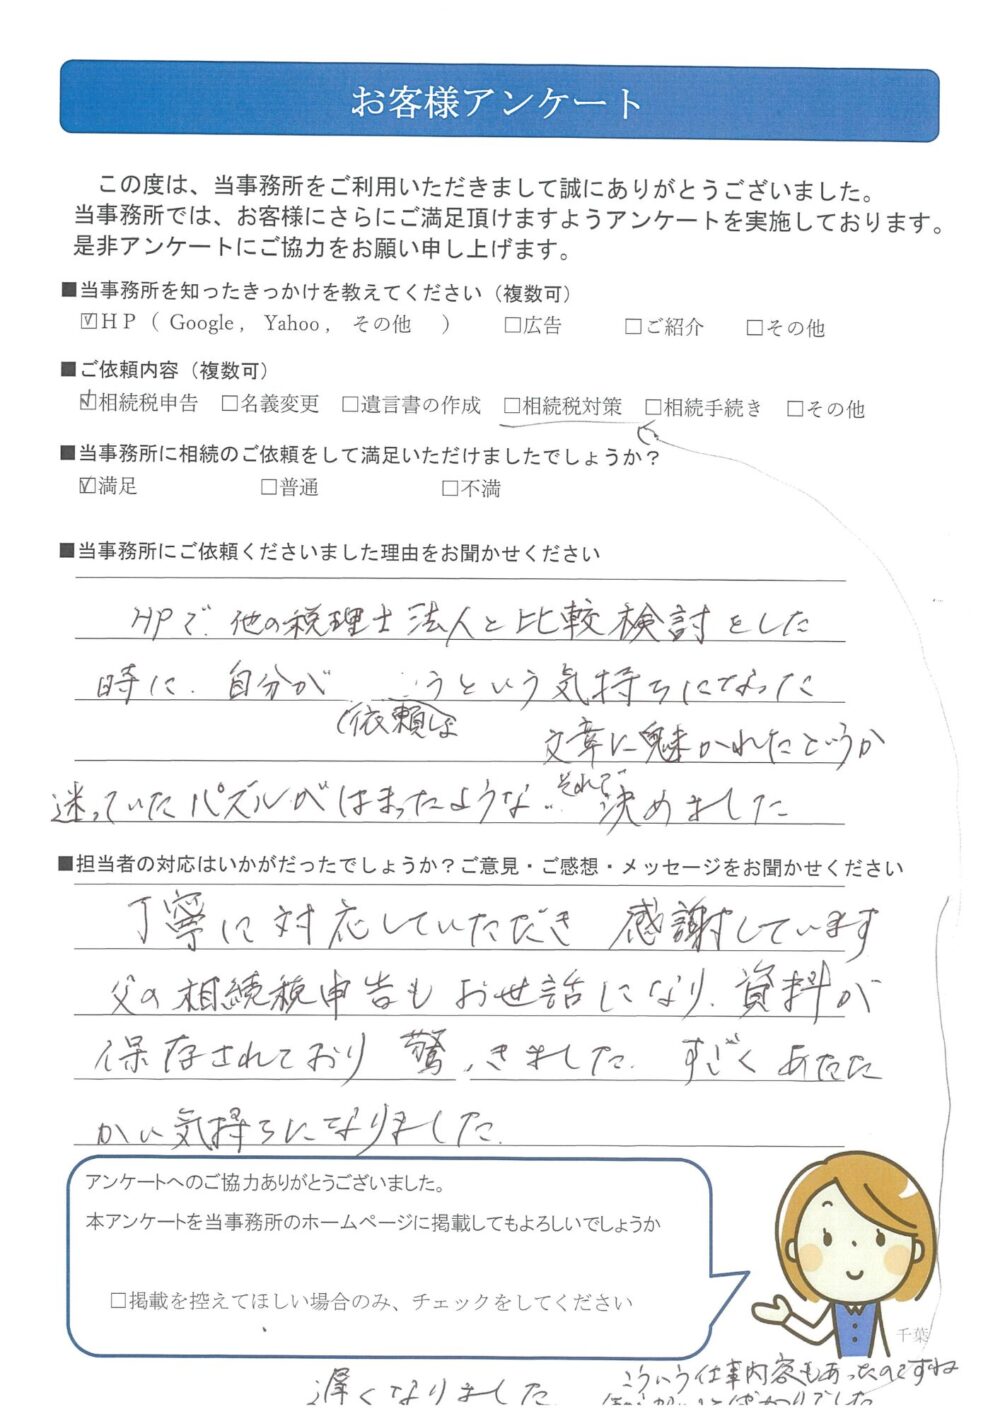 お客様アンケート
この度は、当事務所をご利用いただきまして誠にありがとうございました。
当事務所では、お客様にさらにご満足頂けますようアンケートを実施しております。
是非アンケートにご協力をお願い申し上げます。
■当事務所を知ったきっかけを教えてください（複数可）
☑HP（ Google， Yahoo， その他 ） □広告 □ご紹介 □その他
■ご依頼内容（複数可）
☑相続税申告 □名義変更 □遺言書の作成 □相続税対策 □相続手続き □その他
■当事務所に相続のご依頼をして満足いただけましたでしょうか？
☑満足 □普通 □不満
■当事務所にご依頼くださいました理由をお聞かせください
HPで、他の税理士法人と比較検討をした
時に、自分が うという気持ちになった
(依頼しよ
文章に魅かれたというか
迷っていたパズルがはまったような‥それで決めました
■担当者の対応はいかがだったでしょうか？ご意見・ご感想・メッセージをお聞かせください
丁寧に対応していただき 感謝しています
父の相続税申告もお世話になり、資料が
保存されており 驚ㇽきました。すごくあたた
かい気持ちになりました。
アンケートへのご協力ありがとうございました。
本アンケートを当事務所のホームページに掲載してもよろしいでしょうか
□掲載を控えてほしい場合のみ、チェックをしてください
千葉
遅くなりました
こういう仕事内容もあったのですね